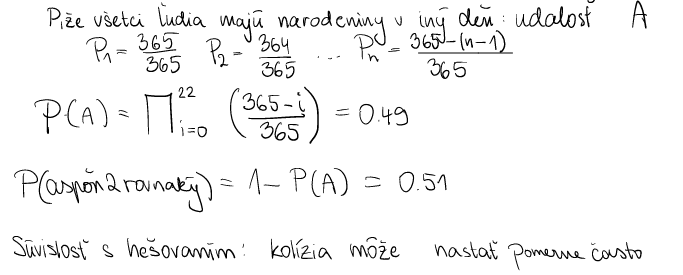 P, že všetci ľudia majú narodeniny v iný deň: udalosť A
P₁ = 365/365 P₂ = 364/365 ... Pₙ = 365-(n-1)/365
P(A) = ∏_{i=0}^{22} (365-i/365) = 0.49
P(aspôň 2 rovnaký) = 1 - P(A) = 0.51
Súvislosť s hešovaním: kolízia môže nastať pomerne často